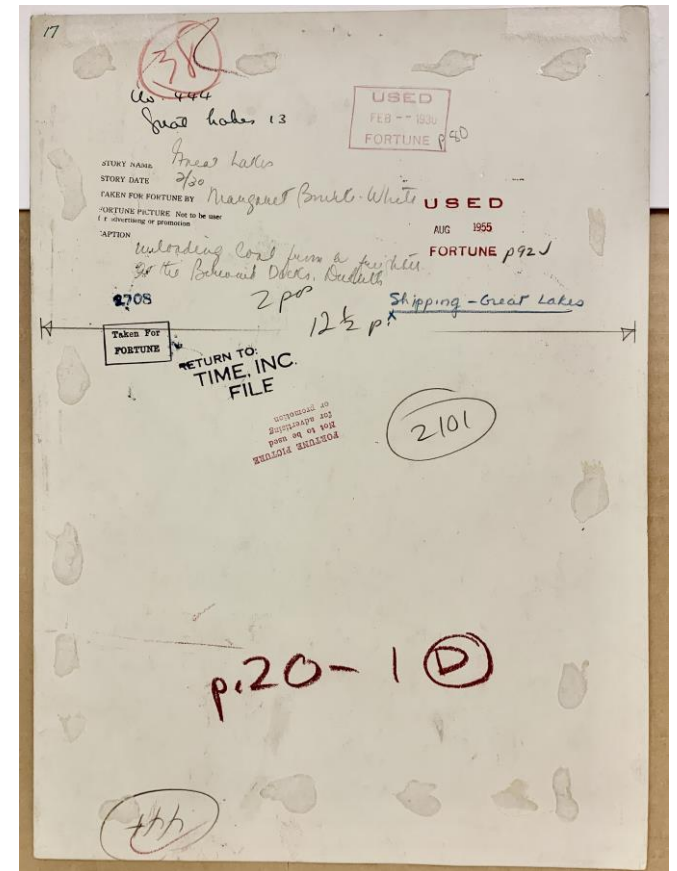 17
38
No. 444
Great Lakes 13
USED
FEB -- 1930
FORTUNE p 80
STORY NAME Great Lakes
STORY DATE 2/30
TAKEN FOR FORTUNE BY Margaret Bourke-White
USED
AUG 1955
FORTUNE p92
FORTUNE PICTURE Not to be used
for advertising or promotion
CAPTION
Unloading Coal from a freighter
at the Docks. Duluth
2708
2 pos
Shipping - Great Lakes
12 1/2 p.
x
Taken For
FORTUNE
RETURN TO:
TIME, INC.
FILE
FORTUNE PICTURE
Not to be used
for advertising
or promotion
2101
p.20-1 D
444